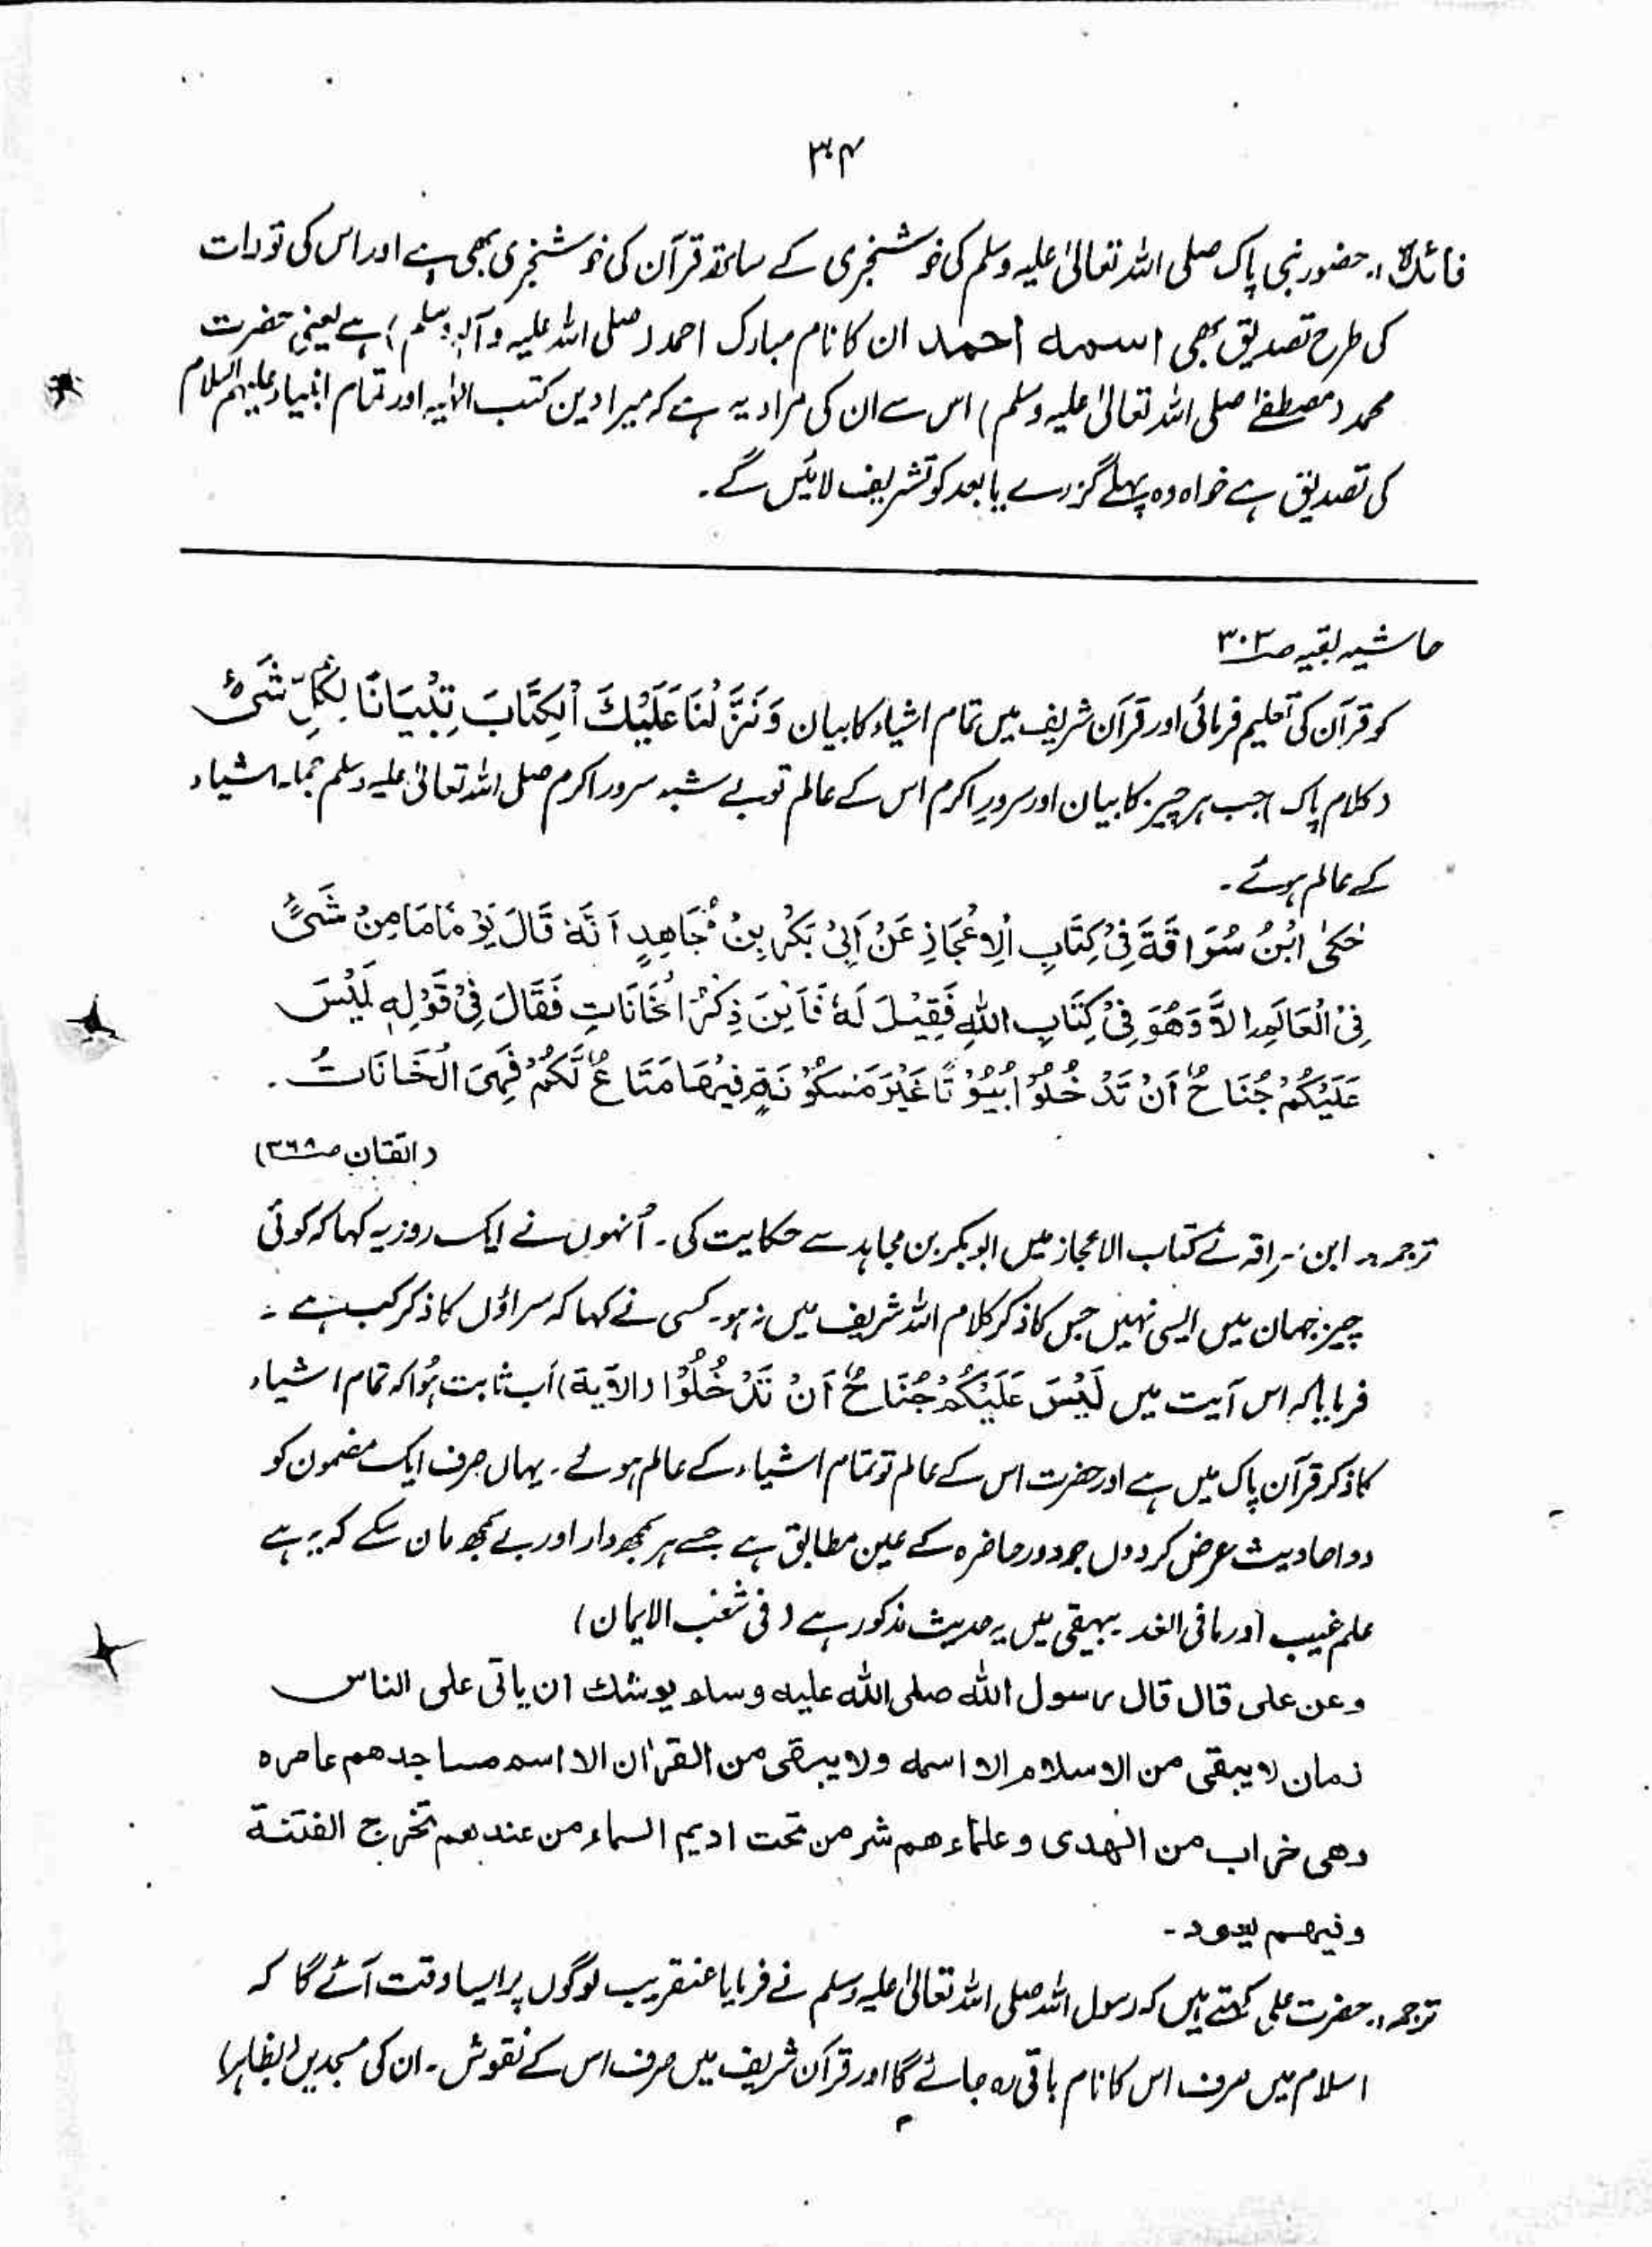 ۳۰۴
فائدہ :۔ حضور نبی پاک صلی اللہ تعالیٰ علیہ وسلم کی خوشخبری کے ساتھ قرآن کی خوشخبری بھی ہے اور اس کی تورات
کی طرح تصدیق بھی اسمہ احمد ان کا نام مبارک احمد (صلی اللہ علیہ وآلہ وسلم) ہے یعنی حضرت
محمد (مصطفےٰ صلی اللہ تعالیٰ علیہ وسلم) اس سے ان کی مراد یہ ہے کہ میرا دین کتب الٰہیہ اور تمام انبیاء علیہم السلام
کی تصدیق ہے خواہ وہ پہلے گزرے یا بعد کو تشریف لائیں گے۔
حاشیہ بقیہ صـ۳۰۳
کو قرآن کی تعلیم فرمائی اور قرآن شریف میں تمام اشیاء کا بیان وَنَزَّلْنَا عَلَيْكَ الْكِتَابَ تِبْيَانًا لِكُلِّ شَيْءٍ
(کلام پاک) جب ہر چیز کا بیان اور سرورِ اکرم اس کے عالم تو بے شبہ سرور اکرم صلی اللہ تعالیٰ علیہ وسلم جملہ اشیاء
کے عالم ہوئے۔
حَكىٰ ابْنُ سُوَاقَةَ فِيْ كِتَابِ الْاِعْجَازِ عَنْ اَبِيْ بَكْرِ بِنْ مُجَاهِدٍ اَنَّهٗ قَالَ يَوْمًا مَا مِنْ شَيْءٍ
فِيْ الْعَالَمِ اِلاَّ وَهُوَ فِيْ كِتَابِ اللهِ فَقِيْلَ لَهٗ فَاَيْنَ ذِكْرُ الْخَانَاتِ فَقَالَ فِيْ قَوْلِهٖ لَيْسَ
عَلَيْكُمْ جُنَاحٌ اَنْ تَدْخُلُوْا بُيُوْتًا غَيْرَ مَسْكُوْنَةٍ فِيْهَا مَتَاعٌ لَّكُمْ فَهِيَ الْخَانَاتُ۔
(اتقان صـ۳۶۸)
ترجمہ :۔ ابن سراقہ نے کتاب الاعجاز میں ابوبکر بن مجاہد سے حکایت کی۔ اُنہوں نے ایک روز یہ کہا کہ کوئی
چیز جہان میں ایسی نہیں جس کا ذکر کلام اللہ شریف میں نہ ہو۔ کسی نے کہا کہ سراؤں کا ذکر کب ہے ۔
فرمایا کہ اس آیت میں لَيْسَ عَلَيْكُمْ جُنَاحٌ اَنْ تَدْخُلُوْا (الآیة) اَب ثابت ہُوا کہ تمام اشیاء
کا ذکر قرآن پاک میں ہے اور حضرت اس کے عالم تو تمام اشیاء کے عالم ہوئے۔ یہاں صرف ایک مضمون کو
دو احادیث عرض کر دوں جو دور حاضرہ کے عین مطابق ہے جسے ہر سمجھ دار اور بے سمجھ مان سکے کہ یہ ہے
علم غیب اور مافی الغد بیہقی میں یہ حدیث مذکور ہے (فی شعب الایمان)
وعن علی قال قال رسول الله صلی الله علیه وسلم یوشك ان یاتی علی الناس
زمان لا یبقی من الاسلام الا اسمه ولا یبقی من القرآن الا اسمہ مساجدهم عامرہ
وهی خراب من الهدی وعلماءهم شر من تحت ادیم السماء من عندهم تخرج الفتنة
وفیهم یعود۔
ترجمہ :۔ حضرت علی کہتے ہیں کہ رسول اللہ صلی اللہ تعالیٰ علیہ وسلم نے فرمایا عنقریب لوگوں پر ایسا وقت آئے گا کہ
اسلام میں صرف اس کا نام باقی رہ جائے گا اور قرآن شریف میں صرف اس کے نقوش۔ ان کی مسجدیں (بظاہر)